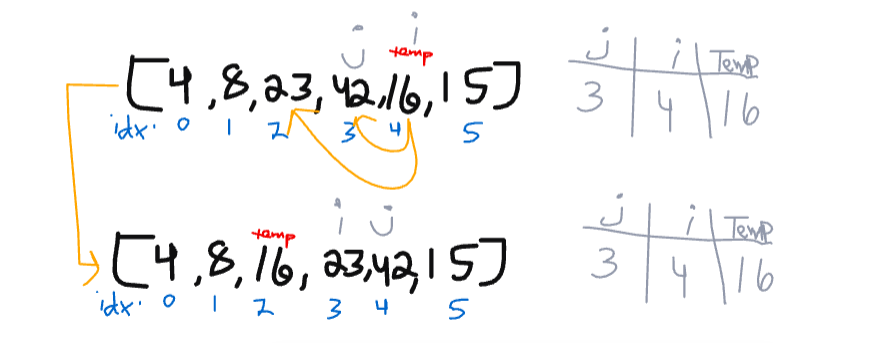 j i
temp
[4,8,23,42,16,15]
idx: 0 1 2 3 4 5
j i Temp
3 4 16
i j
temp
[4,8,16,23,42,15]
idx: 0 1 2 3 4 5
j i Temp
3 4 16